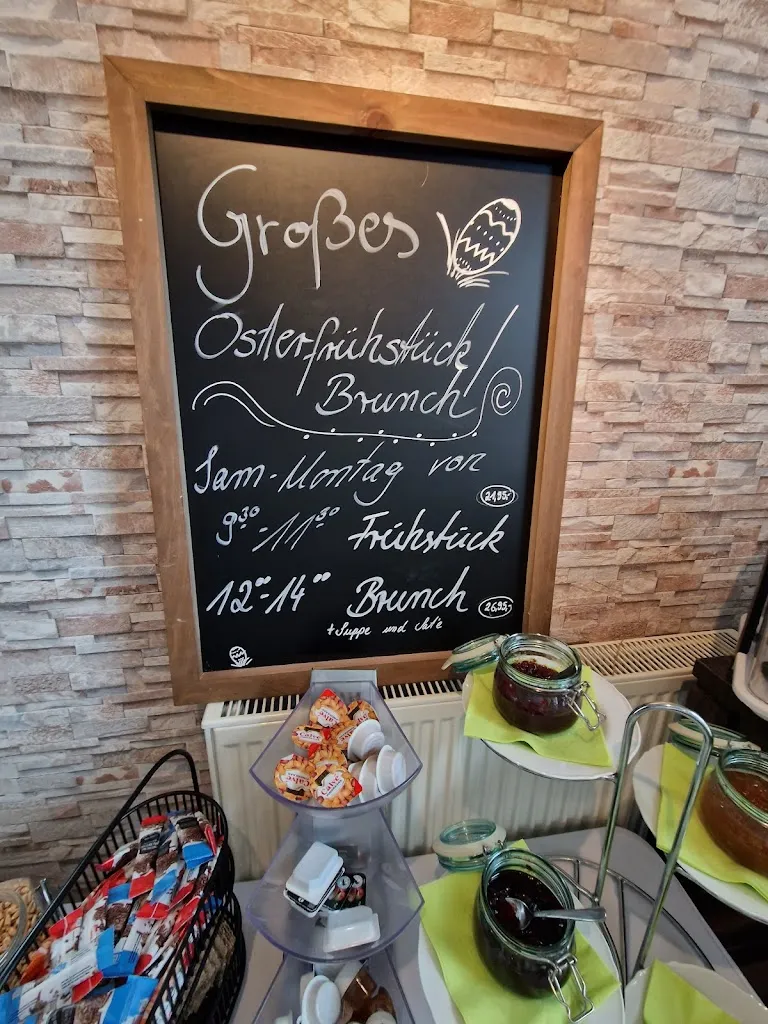 Großes
Osterfrühstück/
Brunch
Sam-Montag von
21,95,-
9³⁰-11³⁰ Frühstück
12⁰⁰-14⁰⁰ Brunch
26,95,-
+ Suppe und
Calvé
Calvé